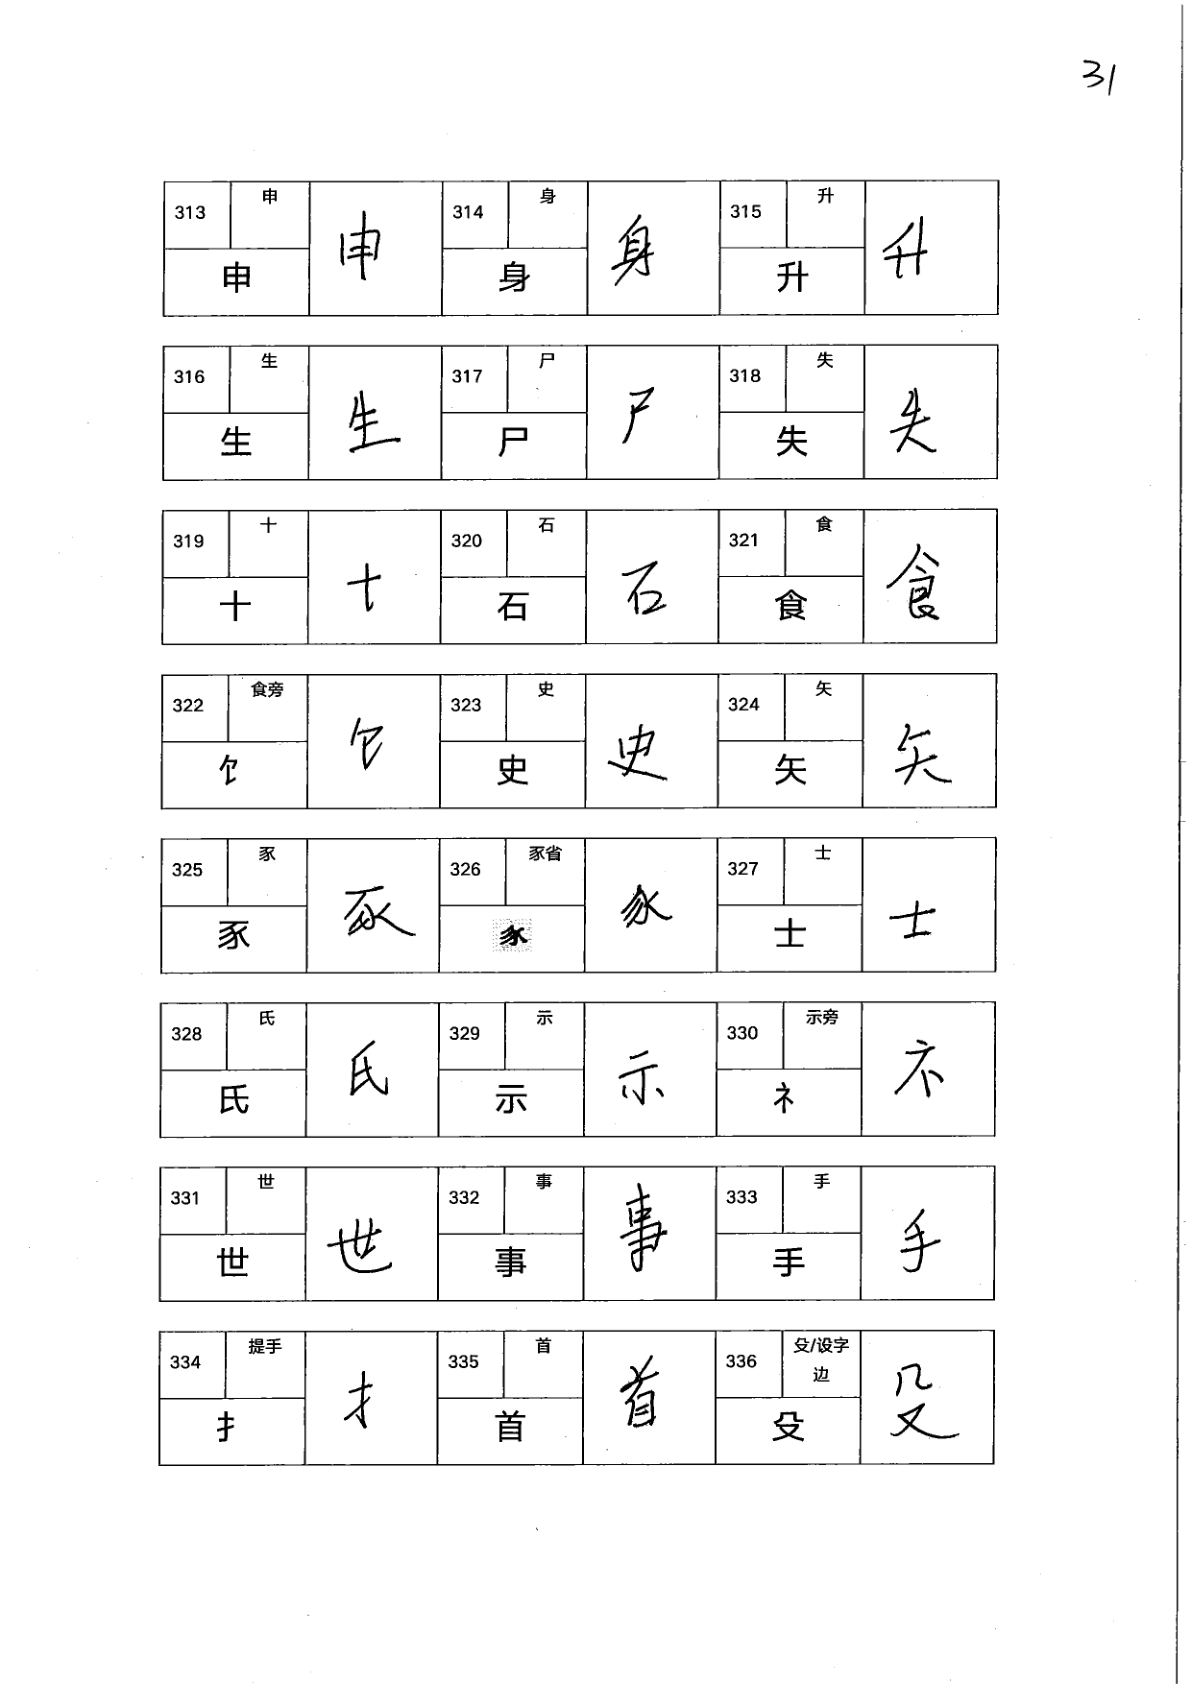 31
313 申 申 314 身 身 315 升 升
申 身 升
316 生 生 317 尸 尸 318 失 失
生 尸 失
319 十 十 320 石 石 321 食 食
十 石 食
322 食旁 饣 323 史 史 324 矢 矢
饣 史 矢
325 豕 豕 326 豕省 327 士 士
豕 士
328 氏 氏 329 示 示 330 示旁 礻
氏 示 礻
331 世 世 332 事 事 333 手 手
世 事 手
334 提手 扌 335 首 首 336 殳/设字
边 殳
扌 首 殳